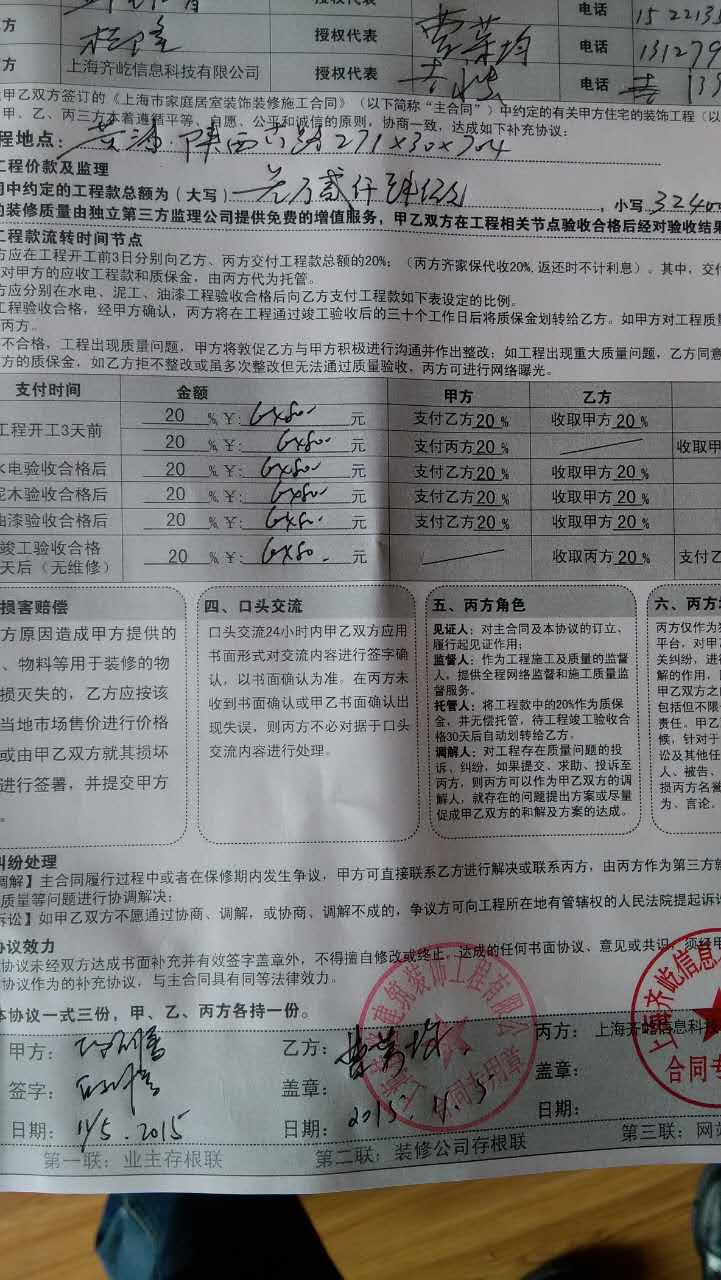 授权代表 电话 152213
方 授权代表 曹荣均 电话 131279
方 上海齐屹信息科技有限公司 授权代表 电话 13
甲乙双方签订的《上海市家庭居室装饰装修施工合同》（以下简称“主合同”）中约定的有关甲方住宅的装饰工程（以
甲、乙、丙三方本着遵循平等、自愿、公平和诚信的原则，协商一致，达成如下补充协议：
程地点：黄浦.陕西 271 30
工程价款及监理
同中约定的工程款总额为（大写） 万贰仟肆佰 ，小写 32400
的装修质量由独立第三方监理公司提供免费的增值服务，甲乙双方在工程相关节点验收合格后经对验收结果
工程款流转时间节点
方应在工程开工前3日分别向乙方、丙方交付工程款总额的20%；（丙方齐家保代收20%,返还时不计利息）。其中，交付
对甲方的应收工程款和质保金，由丙方代为托管。
方应分别在水电、泥工、油漆工程验收合格后向乙方支付工程款如下表设定的比例。
工程验收合格，经甲方确认，丙方将在工程通过竣工验收后的三十个工作日后将质保金划转给乙方。如甲方对工程质量
丙方。
不合格，工程出现质量问题，甲方将敦促乙方与甲方积极进行沟通并作出整改；如工程出现重大质量问题，乙方同意
方的质保金，如乙方拒不整改或虽多次整改但无法通过质量验收，丙方可进行网络曝光。
支付时间 金额 甲方 乙方
工程开工3天前 20 %￥: 6480 元 支付乙方20 % 收取甲方20 %
20 %￥: 6480 元 支付丙方20 % 收取甲
水电验收合格后 20 %￥: 6480 元 支付乙方20 % 收取甲方20 %
泥木验收合格后 20 %￥: 6480 元 支付乙方20 % 收取甲方20 %
油漆验收合格后 20 %￥: 6480 元 支付乙方20 % 收取甲方20 %
竣工验收合格
天后（无维修） 20 %￥: 6480 元 收取丙方20 % 支付乙
损害赔偿
方原因造成甲方提供的
、物料等用于装修的物
损灭失的，乙方应按该
当地市场售价进行价格
或由甲乙双方就其损坏
进行签署，并提交甲方
。
四、口头交流
口头交流24小时内甲乙双方应用
书面形式对交流内容进行签字确
认，以书面确认为准。在丙方未
收到书面确认或甲乙书面确认出
现失误，则丙方不必对据于口头
交流内容进行处理。
五、丙方角色
见证人：对主合同及本协议的订立、
履行起见证作用；
监督人：作为工程施工及质量的监督
人，提供全程网络监督和施工质量监
督服务。
托管人：将工程款中的20%作为质保
金，并无偿托管，待工程竣工验收合
格30天后自动划转给乙方。
调解人：对工程存在质量问题的投
诉、纠纷，如果提交、求助、投诉至
丙方，则丙方可以作为甲乙双方的调
解人，就存在的问题提出方案或尽量
促成甲乙双方的和解及方案的达成。
六、丙方
丙方仅作为
平台，对甲
关纠纷，进
解的作用，
甲乙双方之
包括但不限
责任。甲乙
候，针对于
讼及其他任
人、被告、
损丙方名誉
为、言论，
纠纷处理
调解】主合同履行过程中或者在保修期内发生争议，甲方可直接联系乙方进行解决或联系丙方，由丙方作为第三方就
质量等问题进行协调解决；
诉讼】如甲乙双方不愿通过协商、调解，或协商、调解不成的，争议方可向工程所在地有管辖权的人民法院提起诉讼
协议效力
协议未经双方达成书面补充并有效签字盖章外，不得擅自修改或终止。达成的任何书面协议、意见或共识，须经甲
协议作为的补充协议，与主合同具有同等法律效力。
本协议一式三份，甲、乙、丙方各持一份。
甲方： 乙方：曹荣均 丙方：上海齐屹信息科技
签字： 盖章： 盖章：
日期：11/5.2015 日期：2015.11.5 日期：
建筑装饰工程有限公
合同专用章
上海齐屹信息
合同专
第一联：业主存根联 第二联：装修公司存根联 第三联：网站